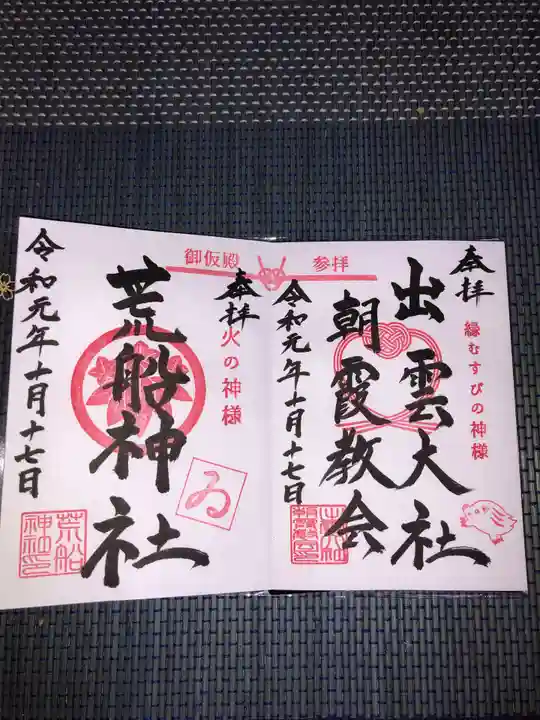 奉拝
縁むすびの神様
出雲大社
朝霞教会
令和元年十月十七日
御仮殿 参拝
奉拝
火の神様
荒船神社
ゐ
令和元年十月十七日
荒船
神社印